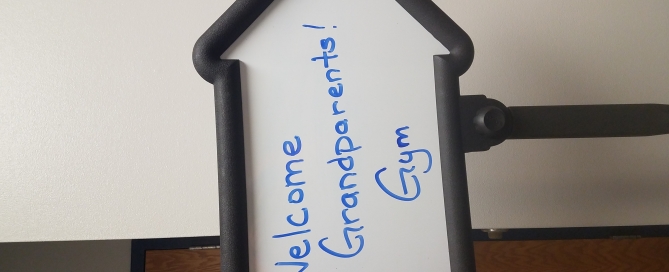 Welcome
Grandparents!
Gym